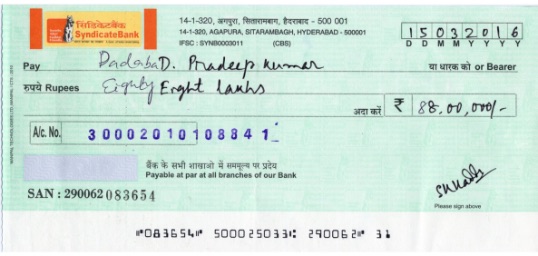 सिंडिकेटबैंक
SyndicateBank
14-1-320, अगपुरा, सितारामबाग, हैदराबाद - 500 001
14-1-320, AGAPURA, SITARAMBAGH, HYDERABAD - 500001
IFSC : SYNB0003011 (CBS)
15032016
D D M M Y Y Y Y
Pay DadabaD. Pradeep Kumar या धारक को or Bearer
रुपये Rupees Eighty Eight lakhs
अदा करें ₹ 88,00,000/-
A/c. No. 30002010108841
बैंक के सभी शाखाओ में सममूल्य पर प्रदेय
Payable at par at all branches of our Bank
SAN : 290062083654
Please sign above
⑈083654⑈ 500025033⑆ 290062⑈ 31